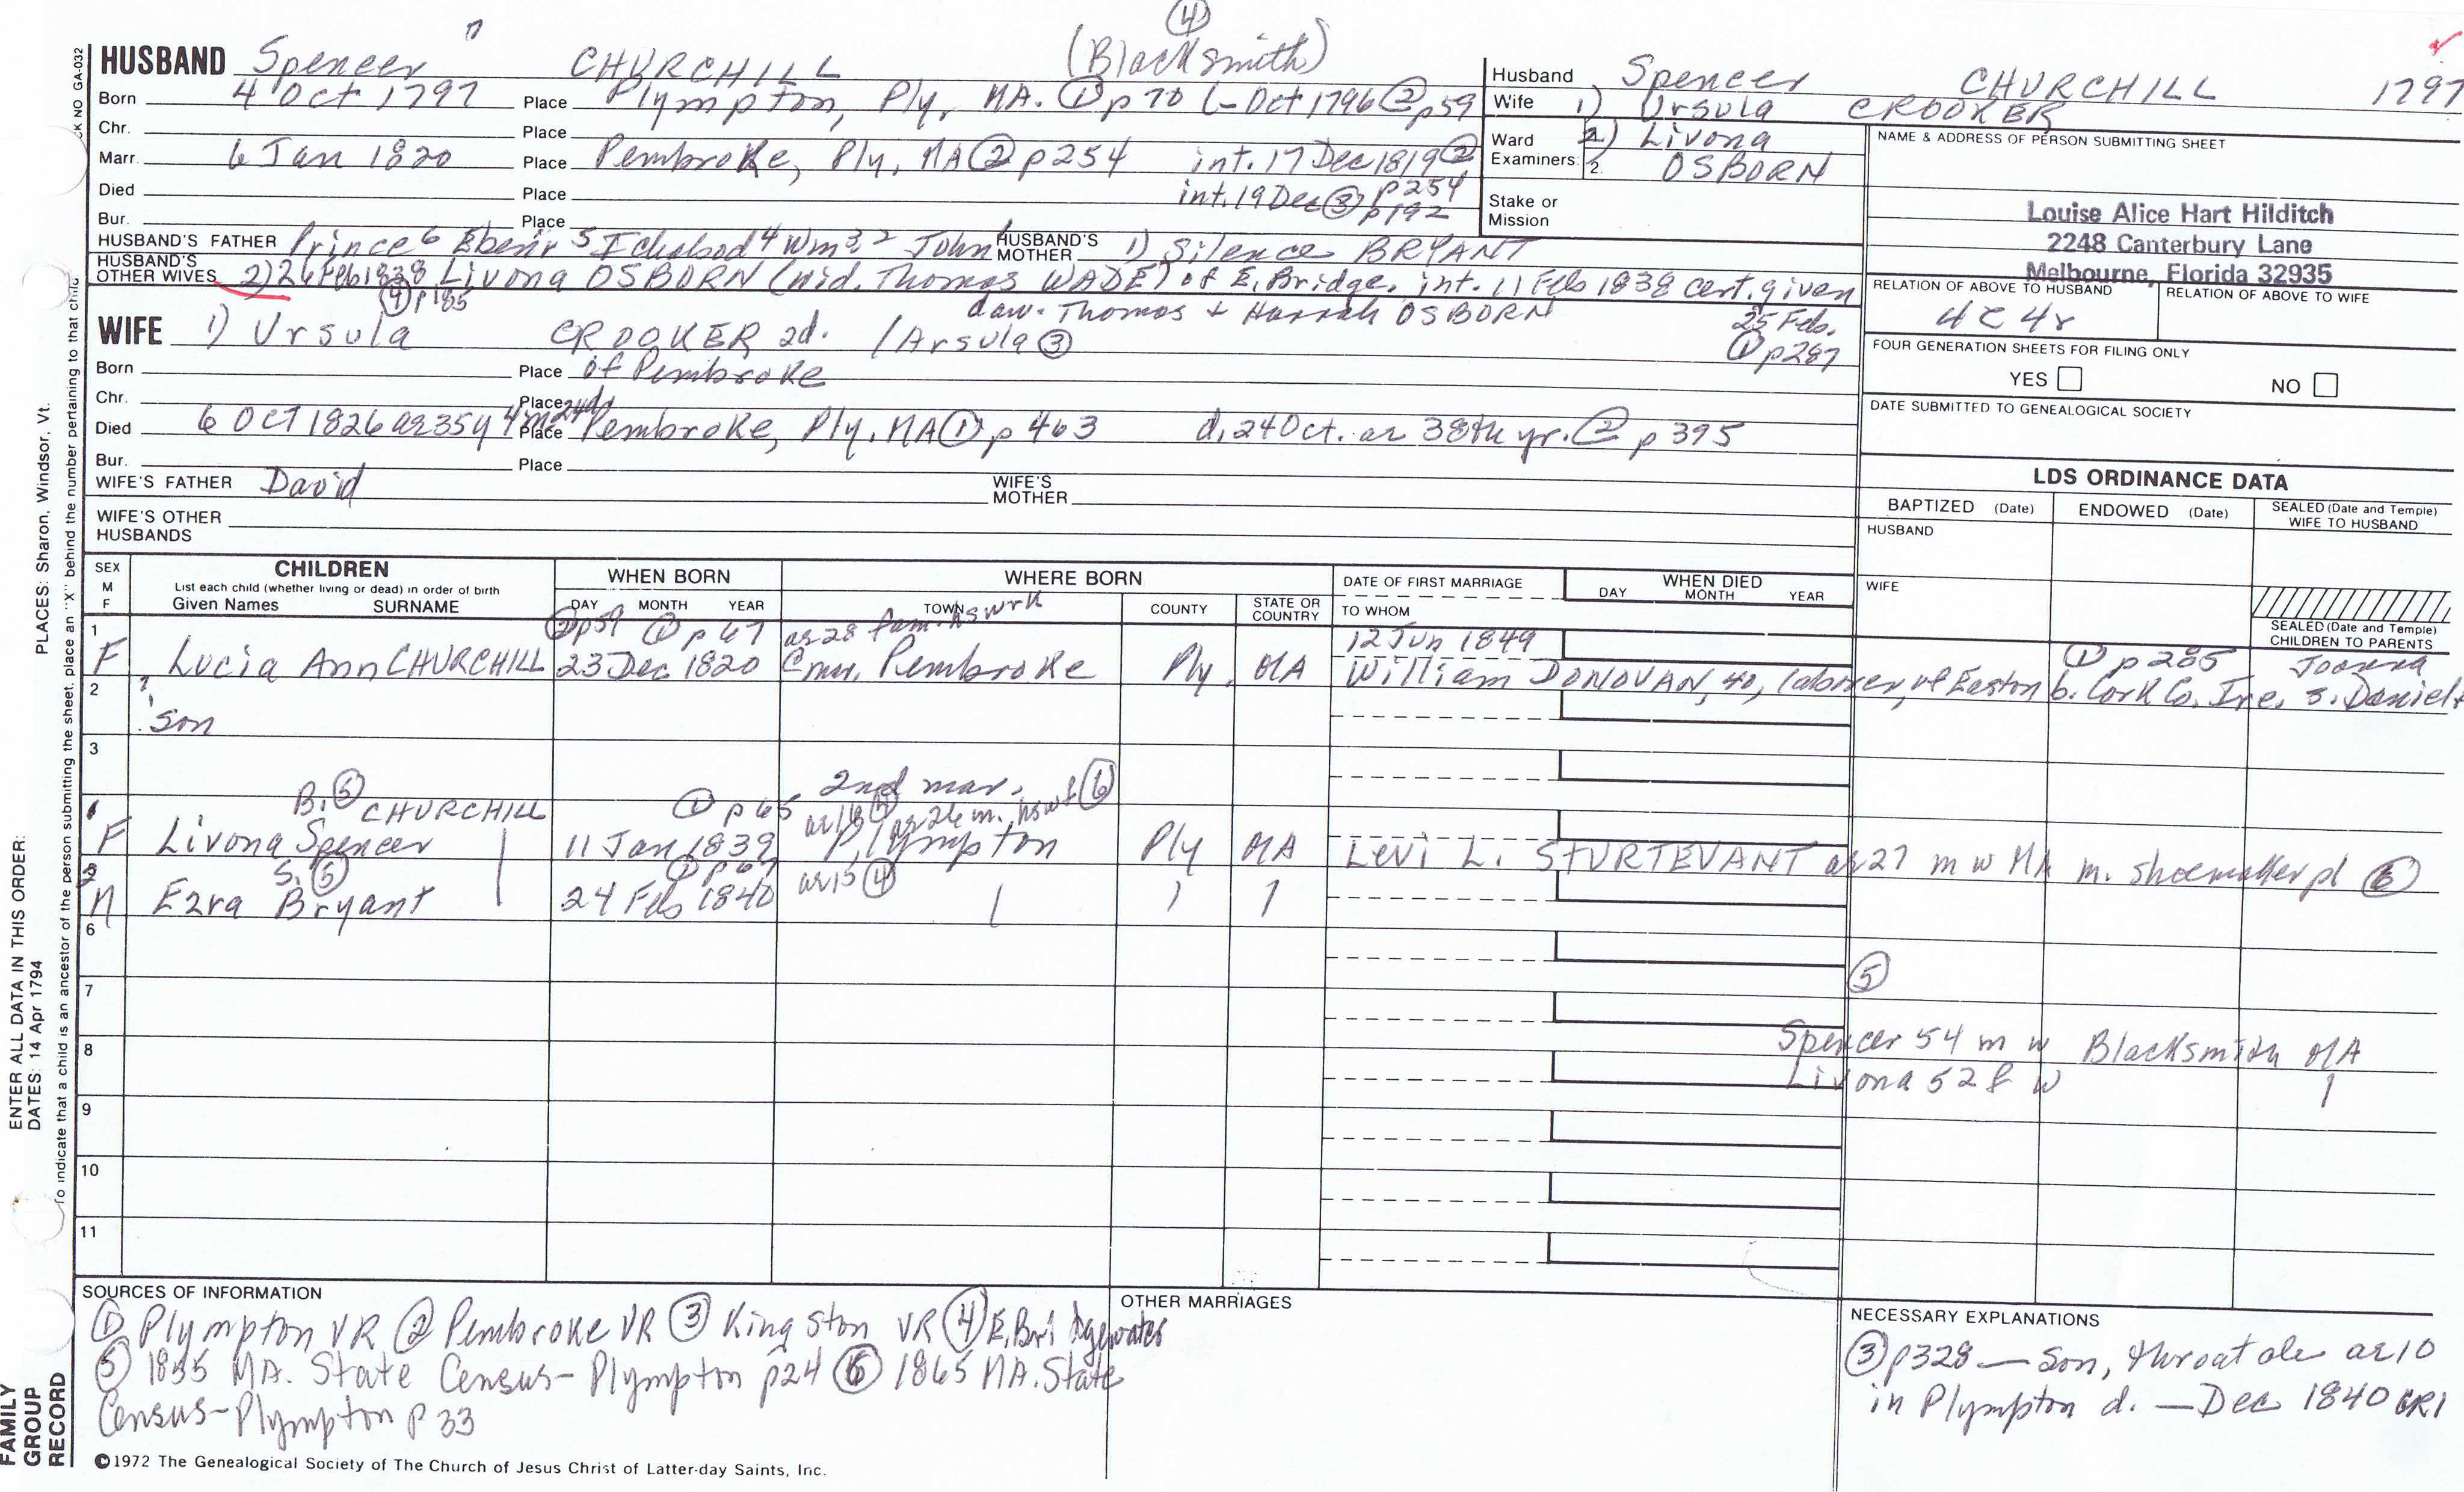 ④
HUSBAND Spencer 7 CHURCHILL (Blacksmith)
Born 4 Oct 1797 Place Plympton, Ply, MA. ① p 70 (- Oct 1796 ② p59
Chr. Place
Marr. 6 Jan 1820 Place Pembroke, Ply, MA ② p254 int. 17 Dec 1819 ② p254
Died Place int. 19 Dec ③ p192
Bur. Place
HUSBAND'S FATHER Prince 6 Ebenr 5 Ichabod 4 Wm 3, 2 John 1 HUSBAND'S MOTHER 1) Silence BRYANT
HUSBAND'S OTHER WIVES 2) 26 Feb 1838 Livona OSBORN (wid. Thomas WADE) of E. Bridge. int. 11 Feb 1838 cert. given
④ p185 daw. Thomas + Hannah OSBORN 25 Feb.
WIFE 1) Ursula CROOKER 2d. /Arsula ③ ① p287
Born Place of Pembroke
Chr. Place
Died 6 OCT 1826 ae 35y 4m 24d Place Pembroke, Ply, MA ① p 463 d. 24 Oct. ae 38th yr. ② p 395
Bur. Place
WIFE'S FATHER David WIFE'S MOTHER
WIFE'S OTHER HUSBANDS
Husband Spencer CHURCHILL 1797
Wife 1) Ursula CROOKER
Ward Examiners: 1. 2) Livona
2. OSBORN
Stake or Mission
NAME & ADDRESS OF PERSON SUBMITTING SHEET
Louise Alice Hart Hilditch
2248 Canterbury Lane
Melbourne, Florida 32935
RELATION OF ABOVE TO HUSBAND RELATION OF ABOVE TO WIFE
4C4r
FOUR GENERATION SHEETS FOR FILING ONLY
YES NO
DATE SUBMITTED TO GENEALOGICAL SOCIETY
LDS ORDINANCE DATA
BAPTIZED (Date) ENDOWED (Date) SEALED (Date and Temple) WIFE TO HUSBAND
HUSBAND
WIFE
SEALED (Date and Temple) CHILDREN TO PARENTS
SEX M F CHILDREN WHEN BORN WHERE BORN DATE OF FIRST MARRIAGE WHEN DIED
List each child (whether living or dead) in order of birth
Given Names SURNAME DAY MONTH YEAR TOWN COUNTY STATE OR COUNTRY TO WHOM DAY MONTH YEAR
1 ② p59 ① p 67 ae 28 fam. hswrk 12 Jun 1849 ① p 285 Joanna
F Lucia Ann CHURCHILL 23 Dec 1820 Pembroke Ply. MA William DONOVAN, 40, laborer, of Easton b. Cork Co. Ire. s. Daniel +
2 ?
son
3
B. ⑤ CHURCHILL ① p 65 2nd mar.
4 ae 18 ae 26 m. hswf ⑥
F Livona Spencer 11 Jan 1839 Plympton Ply MA Levi L. STURTEVANT ae 27 m w MA m. shoemaker ⑥
5 S. ⑤ ① p 67 ae 15 ④
M Ezra Bryant 24 Feb 1840
6
7 ⑤
8 Spencer 54 m w Blacksmith MA
Livona 52 f w
9
10
11
SOURCES OF INFORMATION
① Plympton VR ② Pembroke VR ③ Kingston VR ④ E. Bridgewater
⑤ 1855 MA. State Census- Plympton p24 ⑥ 1865 MA. State
Census- Plympton p 33
OTHER MARRIAGES
NECESSARY EXPLANATIONS
③ p328 — Son, throat ae 10
in Plympton d. — Dec 1840 CR1
©1972 The Genealogical Society of The Church of Jesus Christ of Latter-day Saints, Inc.
FAMILY GROUP RECORD
ENTER ALL DATA IN THIS ORDER:
DATES: 14 Apr 1794
PLACES: Sharon, Windsor, Vt.
To indicate that a child is an ancestor of the person submitting the sheet, place an "X" behind the number pertaining to that child.
CK NO GA-032